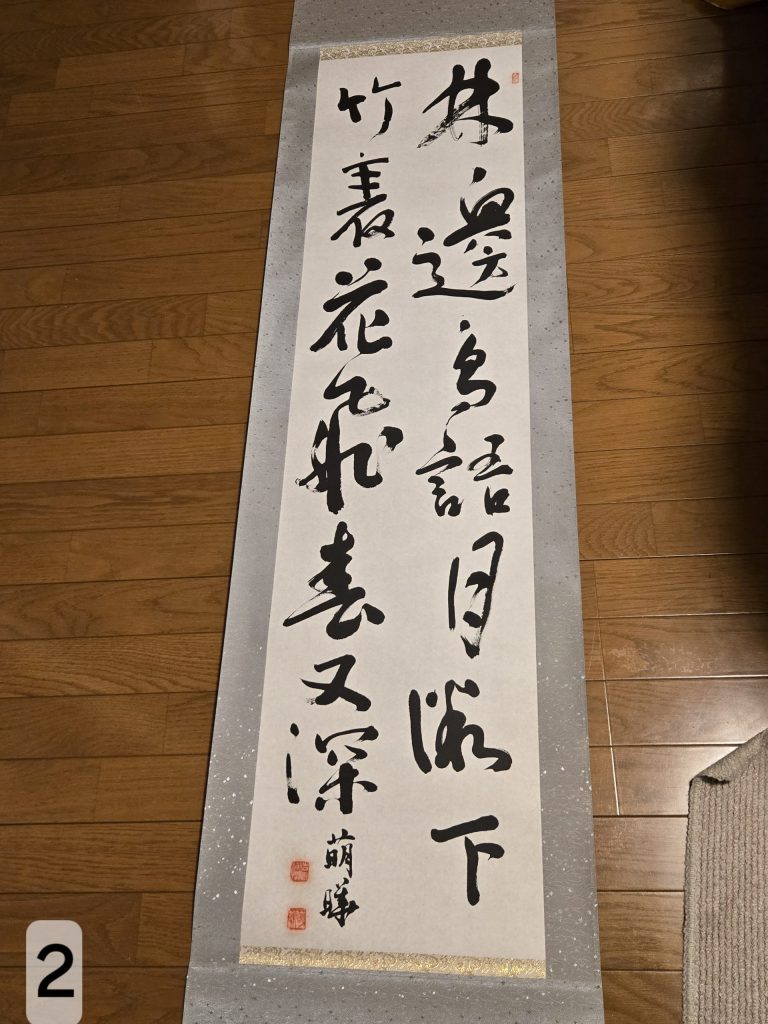 林邊鳥語月微下
竹裏花飛春又深
萌曦
2